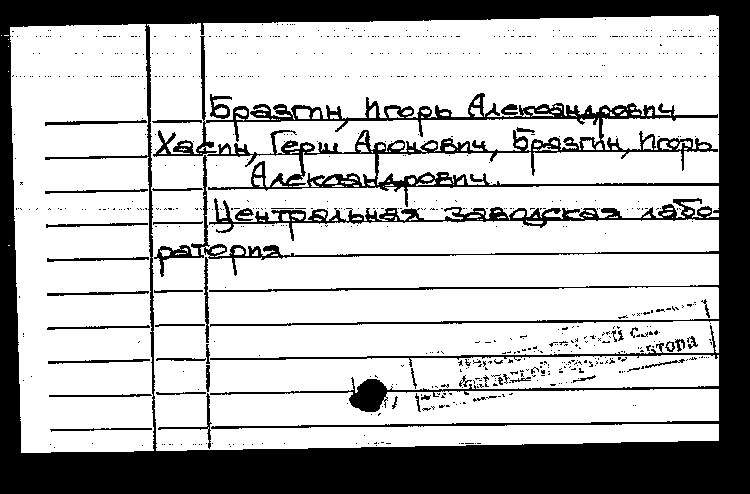 Брязгин, Игорь Александрович
Хасин, Герш Аронович, Брязгин, Игорь
Александрович.
Центральная заводская лабо-
ратория.
автора